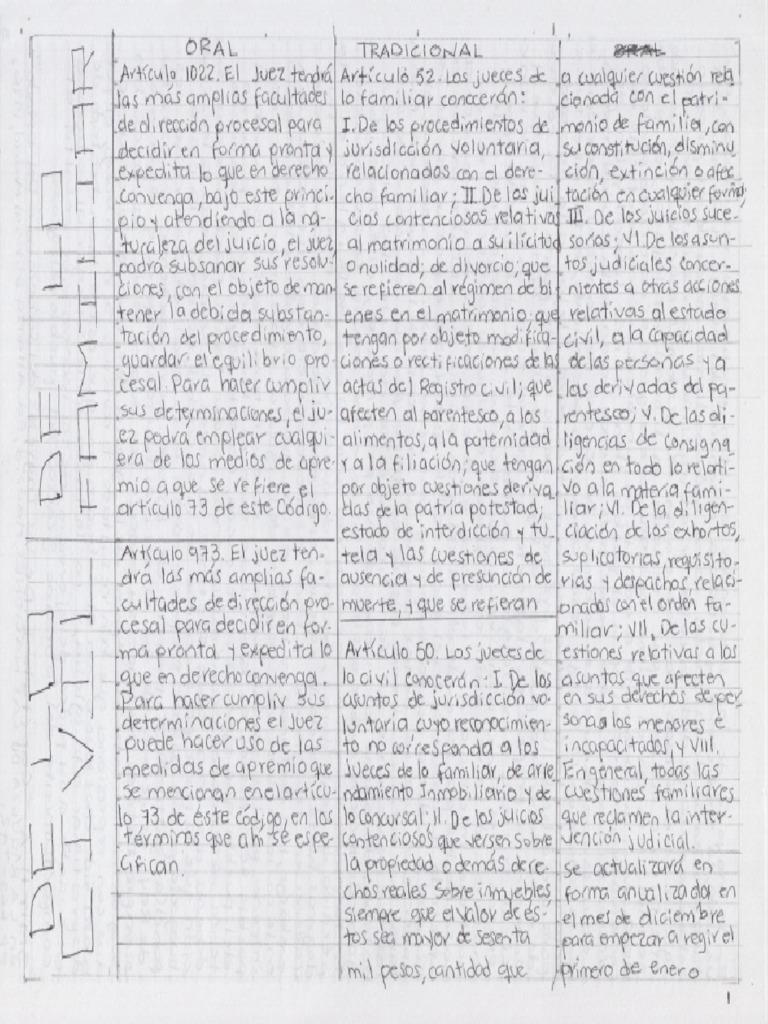 ORAL
Artículo 1022. El Juez tendrá
las más amplias facultades
de dirección procesal para
decidir en forma pronta y
expedita lo que en derecho
convenga, bajo este princi-
pio y atendiendo a la na-
turaleza del juicio, el juez
podrá subsanar sus resolu-
ciones, con el objeto de man
tener la debida substan-
tación del procedimiento,
guardar el equilibrio pro-
cesal. Para hacer cumplir
sus determinaciones, el ju-
ez podrá emplear cualqui-
era de los medios de apre-
mio a que se refiere el
artículo 73 de este Código.
DE LO
FAMILIAR
TRADICIONAL
Artículo 52. Los jueces de
lo familiar conocerán:
I. De los procedimientos de
jurisdicción voluntaria,
relacionados con el dere-
cho familiar; II. De los jui
cios contenciosos relativos
al matrimonio a su ilicitud
o nulidad; de divorcio; que
se refieren al régimen de bi
enes en el matrimonio que
tengan por objeto modifica-
ciones o rectificaciones de las
actas del Registro civil; que
afecten al parentesco, a los
alimentos, a la paternidad
y a la filiación; que tengan
por objeto cuestiones deriva
das de la patria potestad;
estado de interdicción y tu-
tela y las cuestiones de
ausencia y de presunción de
muerte, y que se refieran
a cualquier cuestión rela
cionada con el patri-
monio de familia, con
su constitución, disminu
ción, extinción o afec
tación en cualquier forma;
III. De los juicios suce-
sorios; VI. De los asun-
tos judiciales concer-
nientes a otras acciones
relativas al estado
civil, a la capacidad
de las personas y a
las derivadas del pa-
rentesco; V. De las di-
ligencias de consigna
ción en todo lo relati-
vo a la materia fami-
liar; VI. De la diligen-
ciación de los exhortos,
suplicatorias, requisito-
rias y despachos, relaci-
onados con el orden fa-
miliar; VII. De las cu-
estiones relativas a los
asuntos que afecten
en sus derechos de per
sona a los menores e
incapacitados, y VIII.
En general, todas las
cuestiones familiares
que reclamen la inter-
vención judicial.
DE LO
CIVIL
Artículo 973. El juez ten-
drá las más amplias fa-
cultades de dirección pro-
cesal para decidir en for-
ma pronta y expedita lo
que en derecho convenga.
Para hacer cumplir sus
determinaciones el juez
puede hacer uso de las
medidas de apremio que
se mencionan en el artícu-
lo 73 de este código, en los
términos que ahí se espe-
cifican.
Artículo 50. Los jueces de
lo civil conocerán: I. De los
asuntos de jurisdicción vo-
luntaria cuyo reconocimien-
to no corresponda a los
jueces de lo familiar, de arre
ndamiento Inmobiliario y de
lo concursal; II. De los juicios
contenciosos que versen sobre
la propiedad o demás dere-
chos reales sobre inmuebles,
siempre que el valor de és-
tos sea mayor de sesenta
mil pesos, cantidad que
se actualizará en
forma anualizada en
el mes de diciembre
para empezar a regir el
primero de enero
1